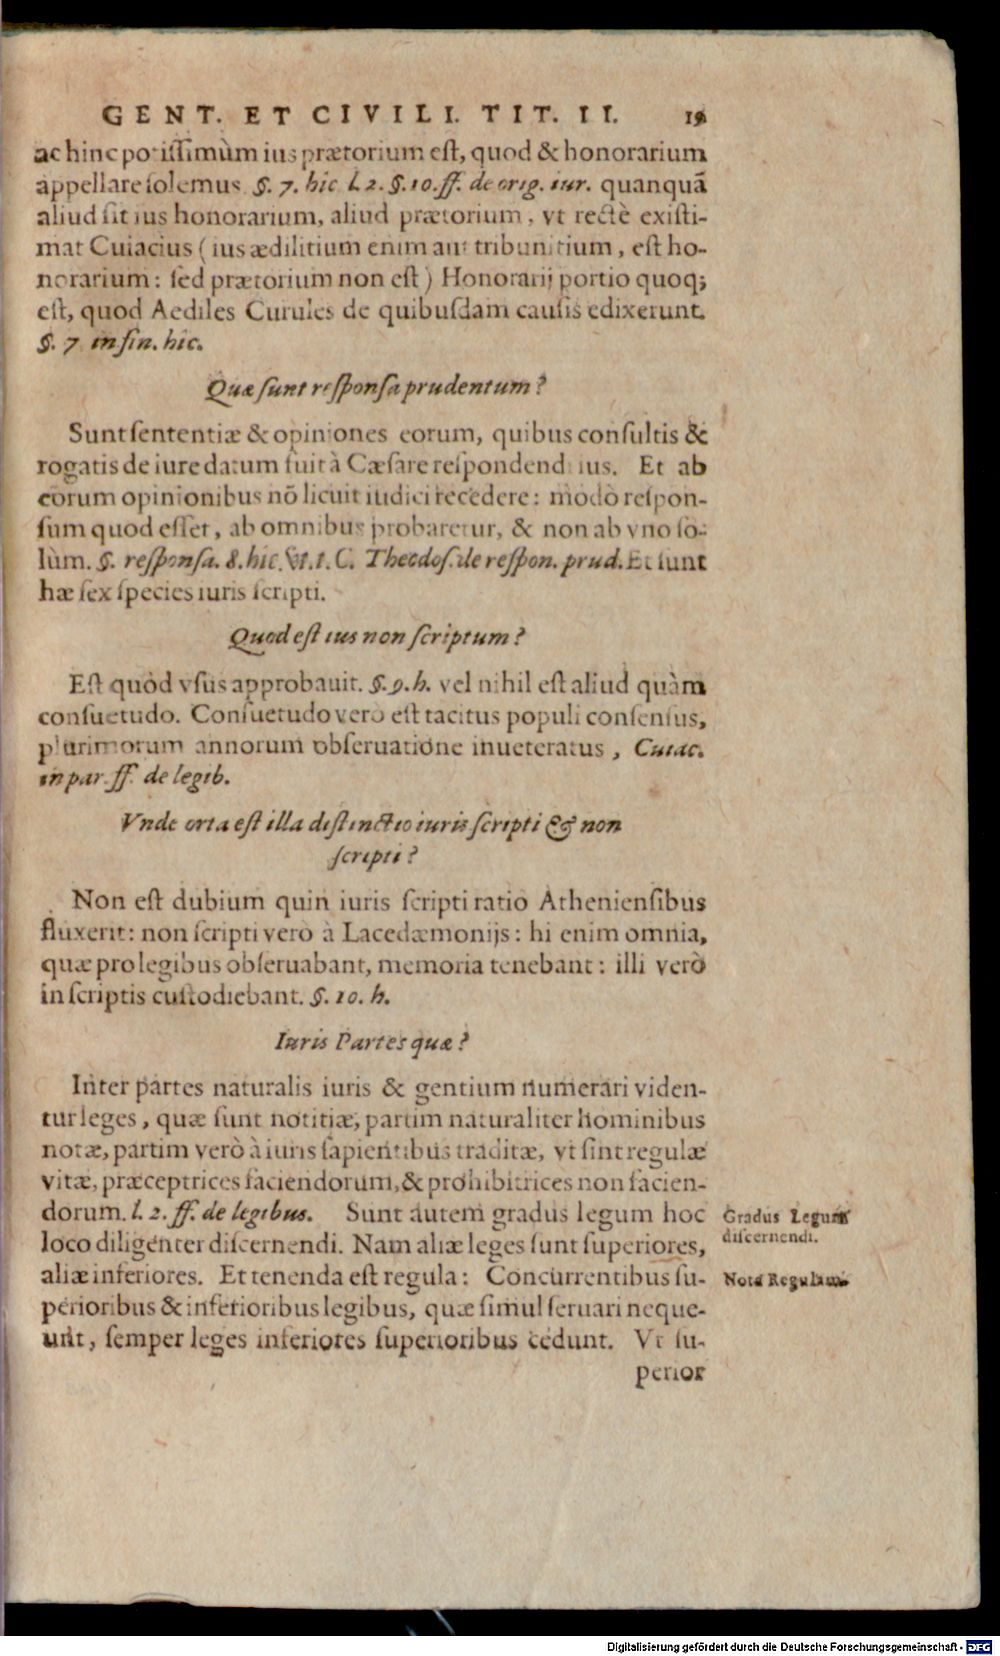 GENT. ET CIVILI. TIT. II. 19
ac hinc potissimùm ius prætorium est, quod & honorarium
appellare solemus §. 7. hic l. 2. §. 10. ff. de orig. iur. quanquã
aliud sit ius honorarium, aliud prætorium, vt rectè existi-
mat Cuiacius (ius ædilitium enim aut tribunitium, est ho-
norarium: sed prætorium non est) Honorarij portio quoq;
est, quod Aediles Curules de quibusdam causis edixerunt.
§. 7 in fin. hic.
Quæ sunt responsa prudentum?
Sunt sententiæ & opiniones eorum, quibus consultis &
rogatis de iure datum fuit à Cæsare respondendi ius. Et ab
eorum opinionibus nõ licuit iudici recedere: modò respon-
sum quod esset, ab omnibus probaretur, & non ab vno so-
lùm. §. responsa. 8. hic. & t. t. C. Theodos. de respon. prud. Et sunt
hæ sex species iuris scripti.
Quod est ius non scriptum?
Est quòd vsus approbauit. §. 9. h. vel nihil est aliud quàm
consuetudo. Consuetudo vero est tacitus populi consensus,
plurimorum annorum obseruatione inueteratus, Cuiac.
in par. ff. de legib.
Vnde orta est illa distinctio iuris scripti & non
scripti?
Non est dubium quin iuris scripti ratio Atheniensibus
fluxerit: non scripti verò à Lacedæmonijs: hi enim omnia,
quæ pro legibus obseruabant, memoria tenebant: illi verò
in scriptis custodiebant. §. 10. h.
Iuris Partes quæ?
Inter partes naturalis iuris & gentium numerari viden-
tur leges, quæ sunt notitiæ, partim naturaliter hominibus
notæ, partim verò à iuris sapientibus traditæ, vt sint regulæ
vitæ, præceptrices faciendorum, & prohibitrices non facien-
dorum. l. 2. ff. de legibus. Sunt autem gradus legum hoc
loco diligenter discernendi. Nam aliæ leges sunt superiores,
aliæ inferiores. Et tenenda est regula: Concurrentibus su-
perioribus & inferioribus legibus, quæ simul seruari neque-
unt, semper leges inferiores superioribus cedunt. Vt su-
perior
Gradus Legum
discernendi.
Nota Regulam
Digitalisierung gefördert durch die Deutsche Forschungsgemeinschaft - DFG